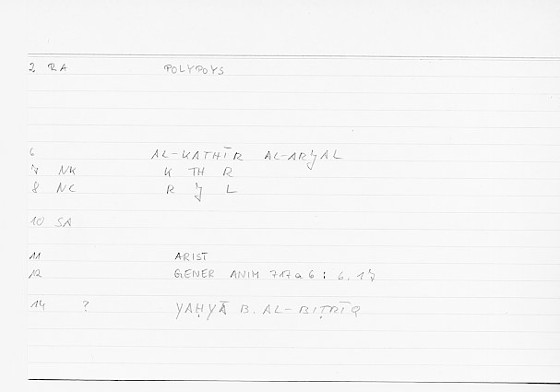 2 RA POLYPOYS
6 AL-KATHĪR AL-ARJAL
7 NK K TH R
8 NC R J L
10 SA
11 ARIST
12 GENER ANIM 717a6 : 6.17
14 ? YAḤYĀ B. AL-BIṬRĪQ